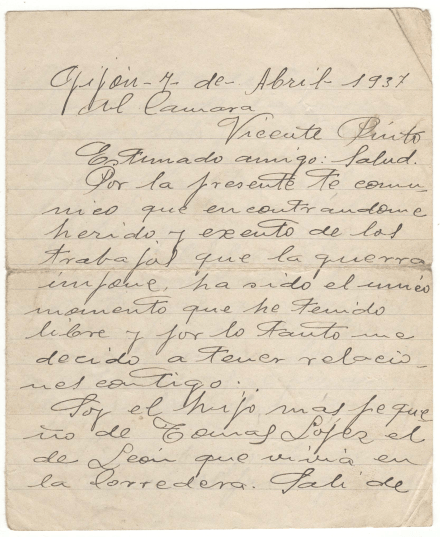 Gijón-7 de Abril 1937
Al Camara
Vicente Pinto
Estimado amigo: Salud.
Por la presente te comu-
nico que encontrándome
herido y exento de los
trabajos que la guerra
impone, ha sido el unico
momento que he tenido
libre y por lo tanto me
decido a tener relacio-
nes contigo.
Soy el hijo mas peque
ño de Tomas Lopez el
de León que vivia en
la Corredera. Sali de